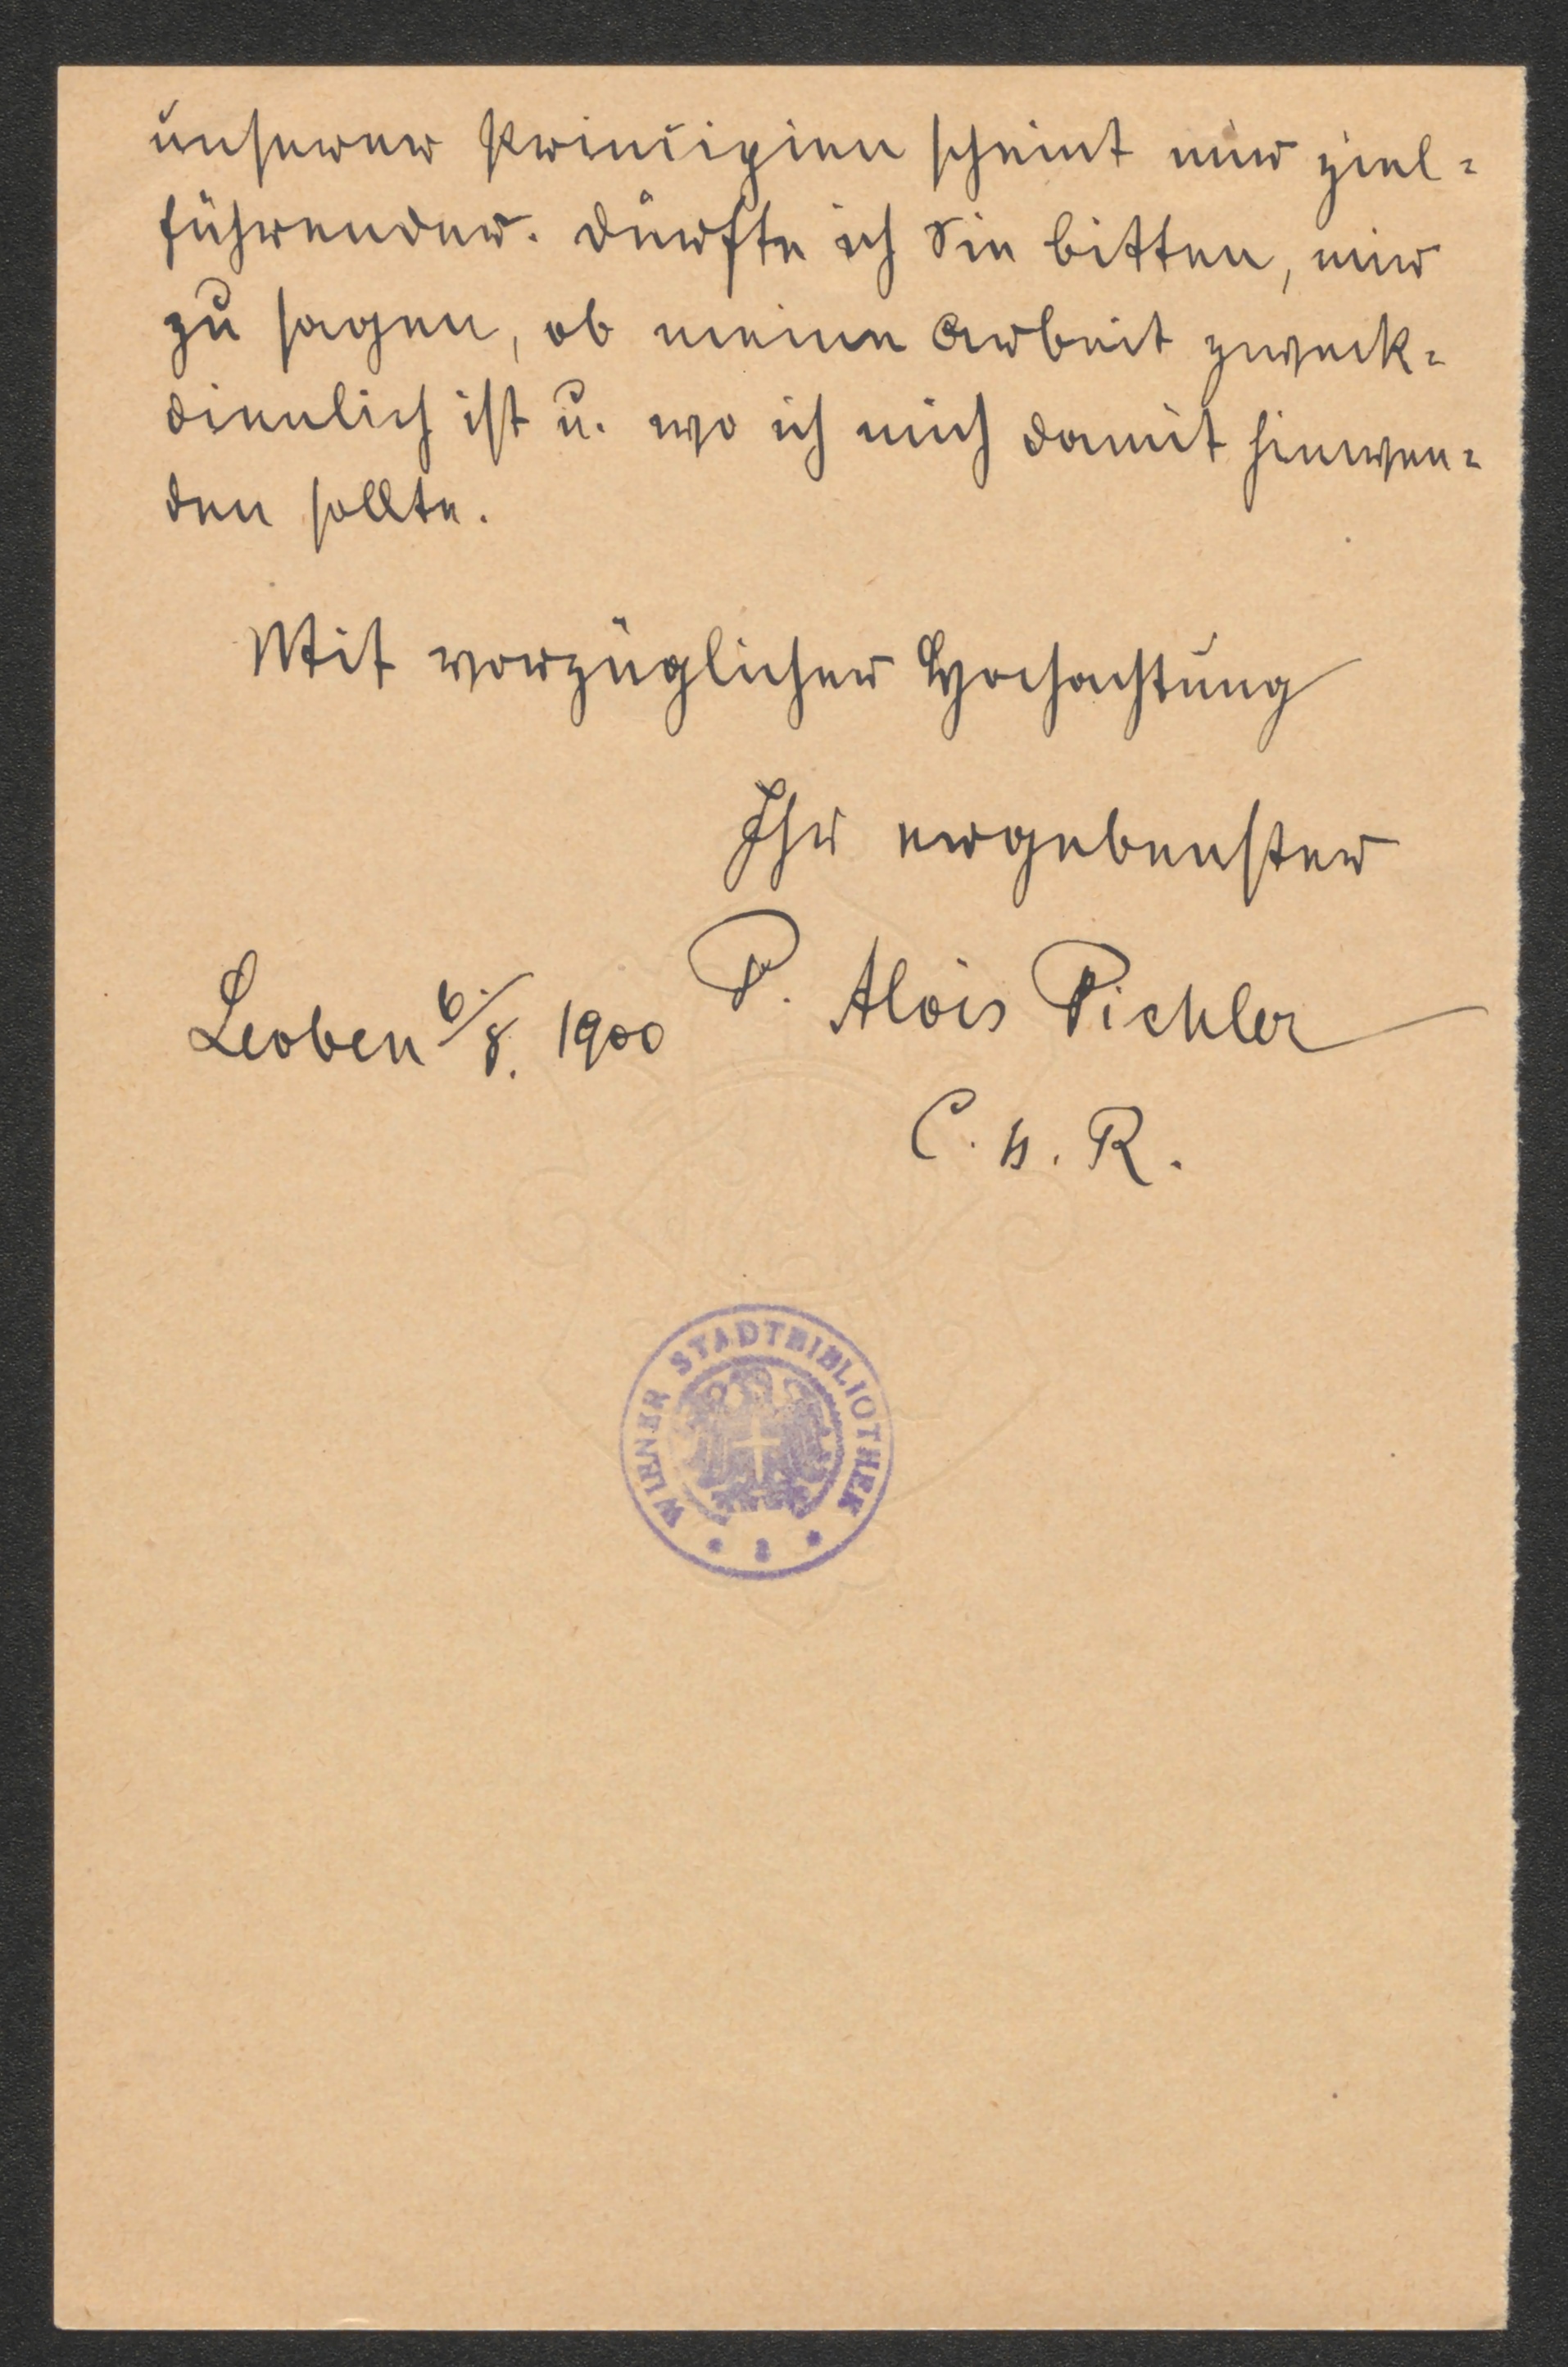 unserer Principien scheint mir ziel=
führender. Dürfte ich Sie bitten, mir
zu sagen, ob meine Arbeit zweck=
dienlich ist u. wo ich mich damit hinwen=
den sollte.
Mit vorzüglicher Hochachtung
Ihr ergebenster
P. Alois Pichler
Leoben 6./8. 1900
C. ss. R.
WIENER STADTBIBLIOTHEK